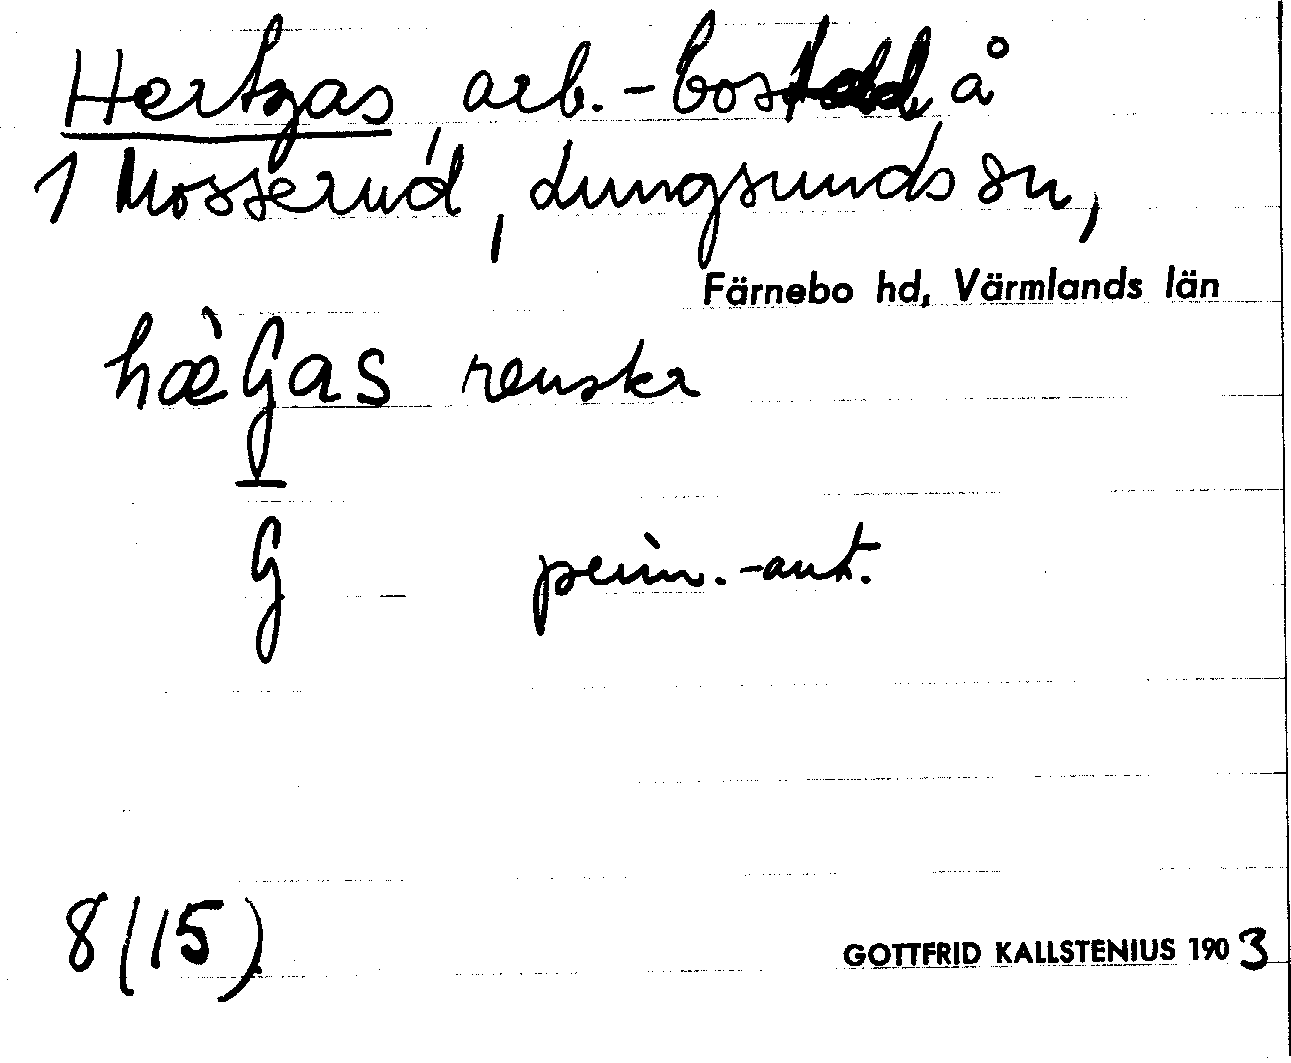 Hertzas, arb.-bostad å
1 Mosserud, Lungsunds sn,
Färnebo hd, Värmlands län
hæ̀Gas renskr
G prim.-ant.
8(15)
GOTTFRID KALLSTENIUS 1903